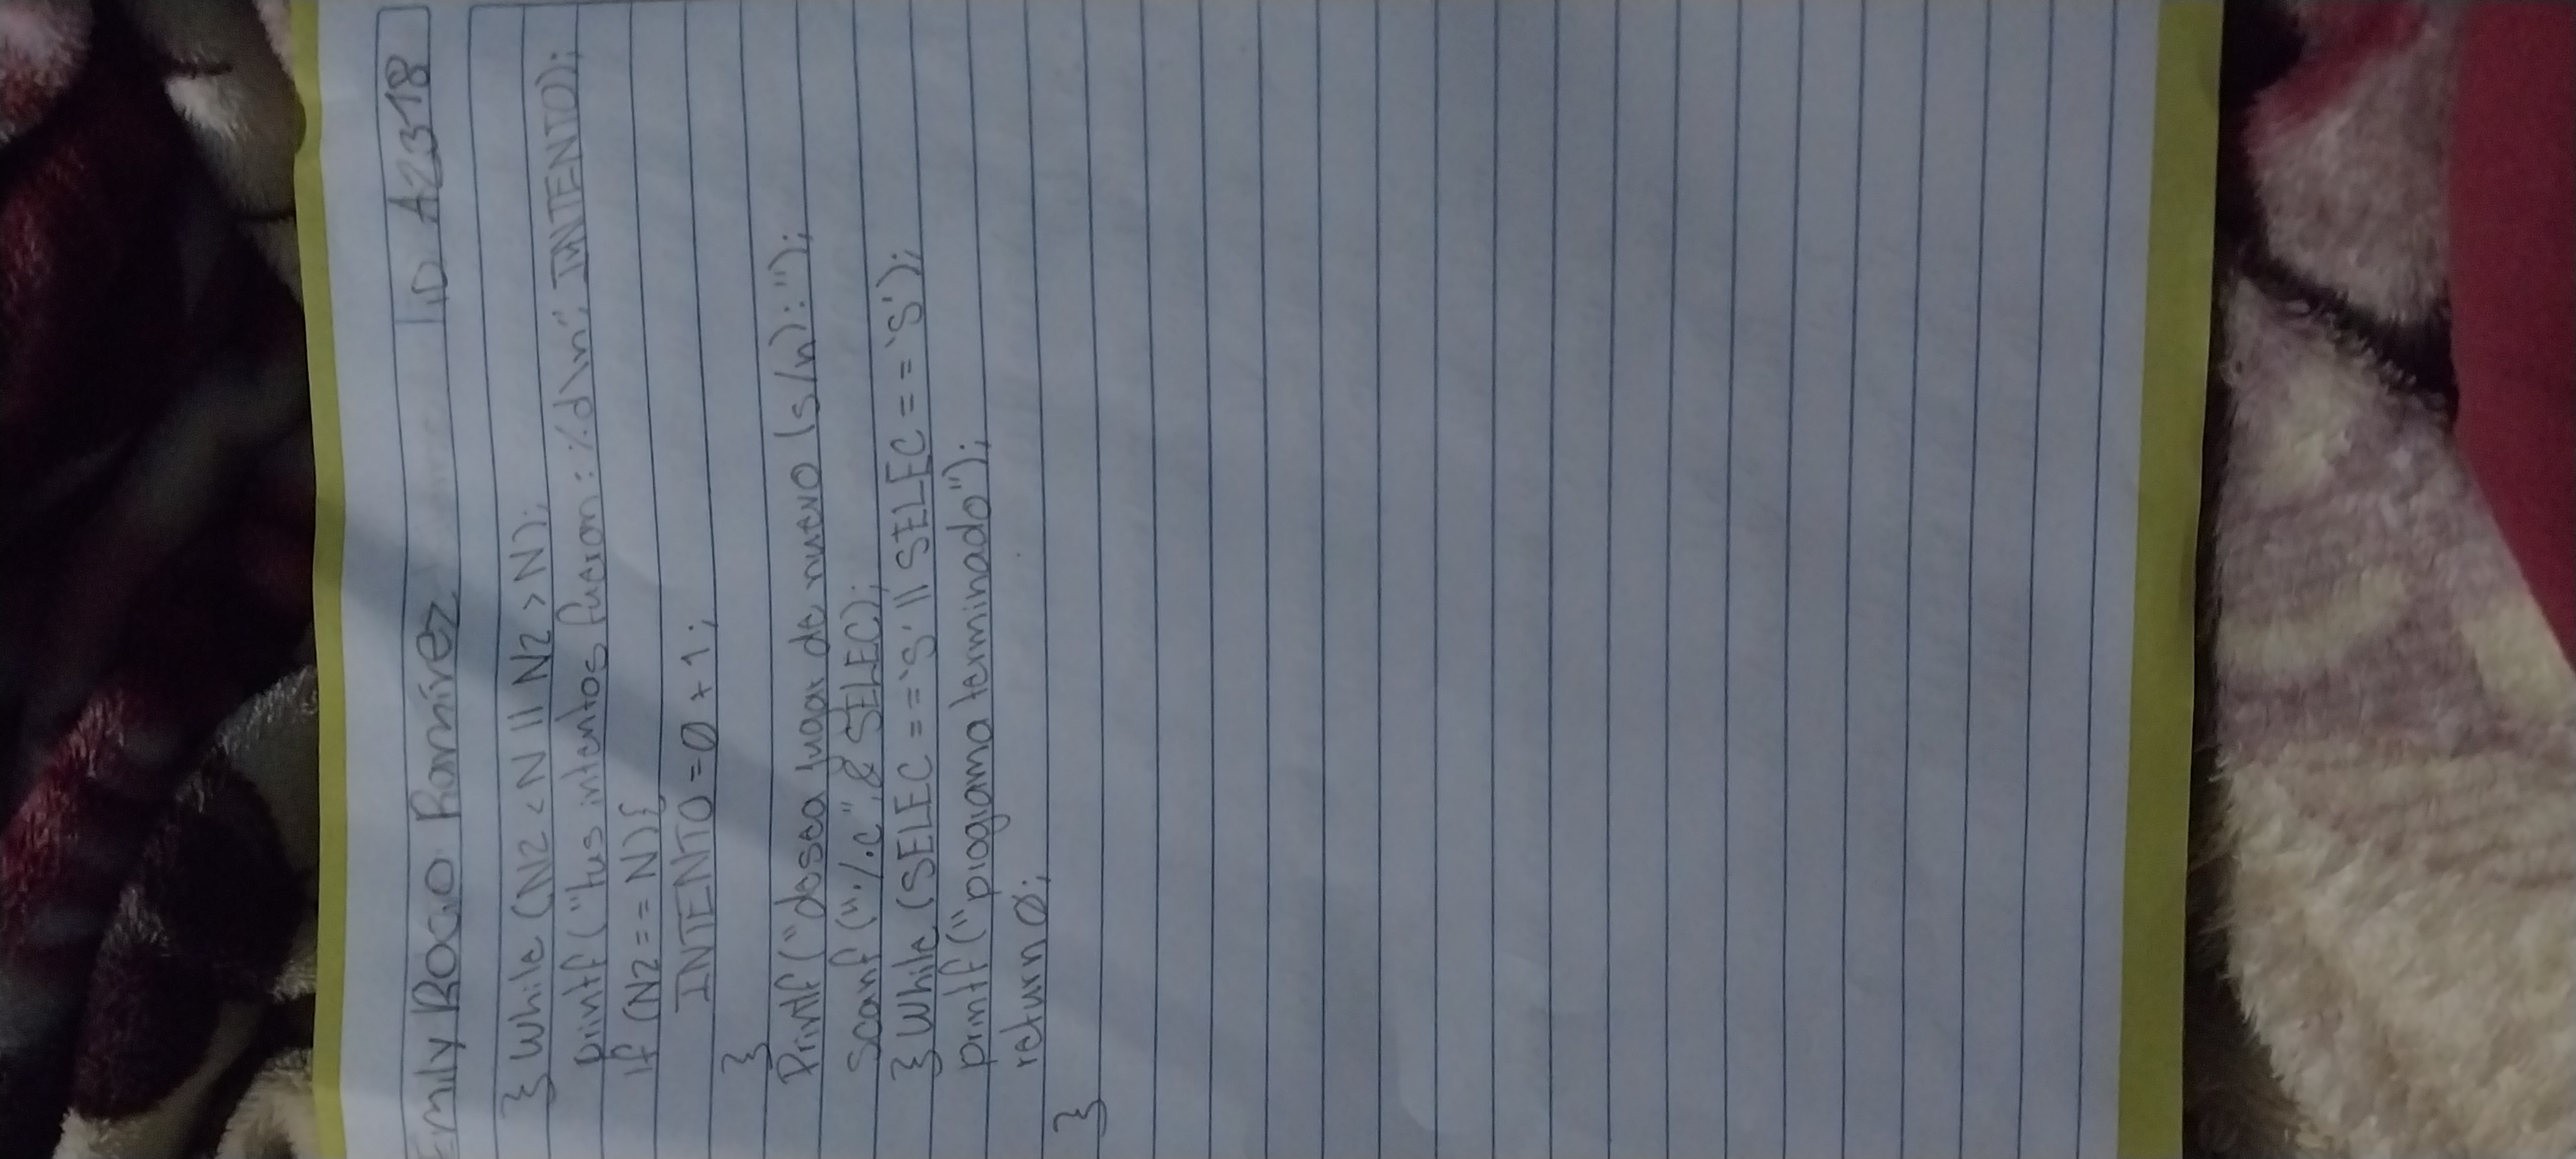 Emily Rocio Ramírez ID A2318
} While (N2 < N || N2 > N);
printf ("tus intentos fueron: %d\n", INTENTO);
if (N2 == N) {
INTENTO = 0 + 1;
}
Printf ("desea jugar de nuevo (s/n): ");
scanf ("%c", & SELEC);
} While (SELEC == 'S' || SELEC == 'S');
printf ("programa terminado");
return 0;
}